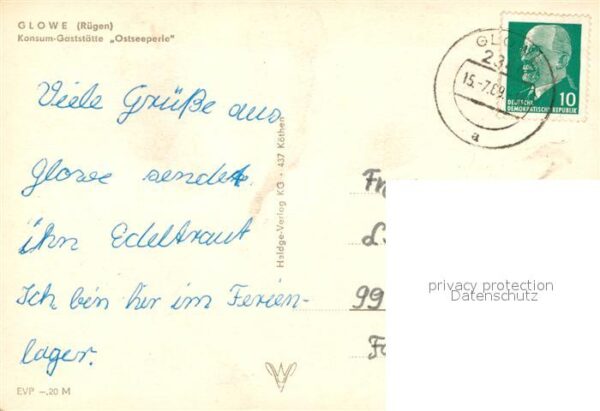 GLOWE (Rügen)
Konsum-Gaststätte „Ostseeperle"
Viele Grüße aus
Glowe sendet
ihn Edeltraut
Ich bin hir im Ferien-
lager.
EVP –.20 M
Haldge-Verlag KG • 437 Köthen
GLO
23
15.-7.69
a
10
DEUTSCHE
DEMOKRATISCHE REPUBLIK
Fr
99
privacy protection
Datenschutz